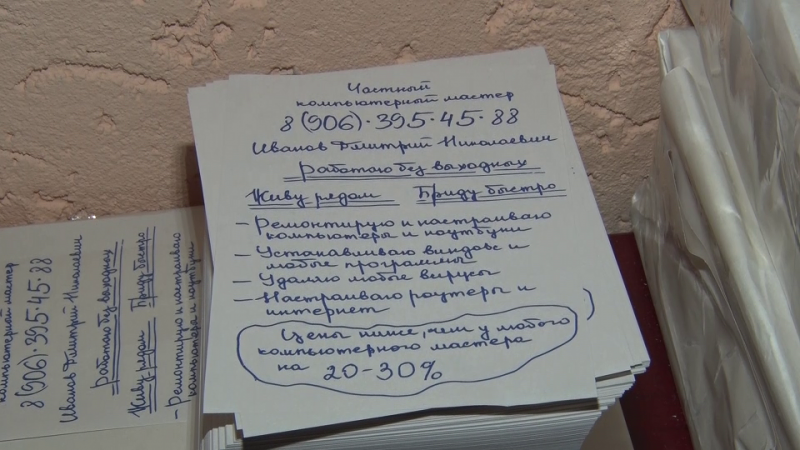 Частный
компьютерный мастер
8(906)·395·45·88
Иванов Дмитрий Николаевич
Работаю без выходных
Живу рядом Приду быстро
- Ремонтирую и настраиваю
компьютеры и ноутбуки
- Устанавливаю виндовс и
любые программы
- Удаляю любые вирусы
- Настраиваю роутеры и
интернет
Цены ниже, чем у любого
компьютерного мастера
на 20-30%
компьютерный мастер
8(906)·395·45·88
Иванов Дмитрий Николаевич
Работаю без выходных
Живу рядом Приду быстро
- Ремонтирую и настраиваю
компьютера и ноутбуки